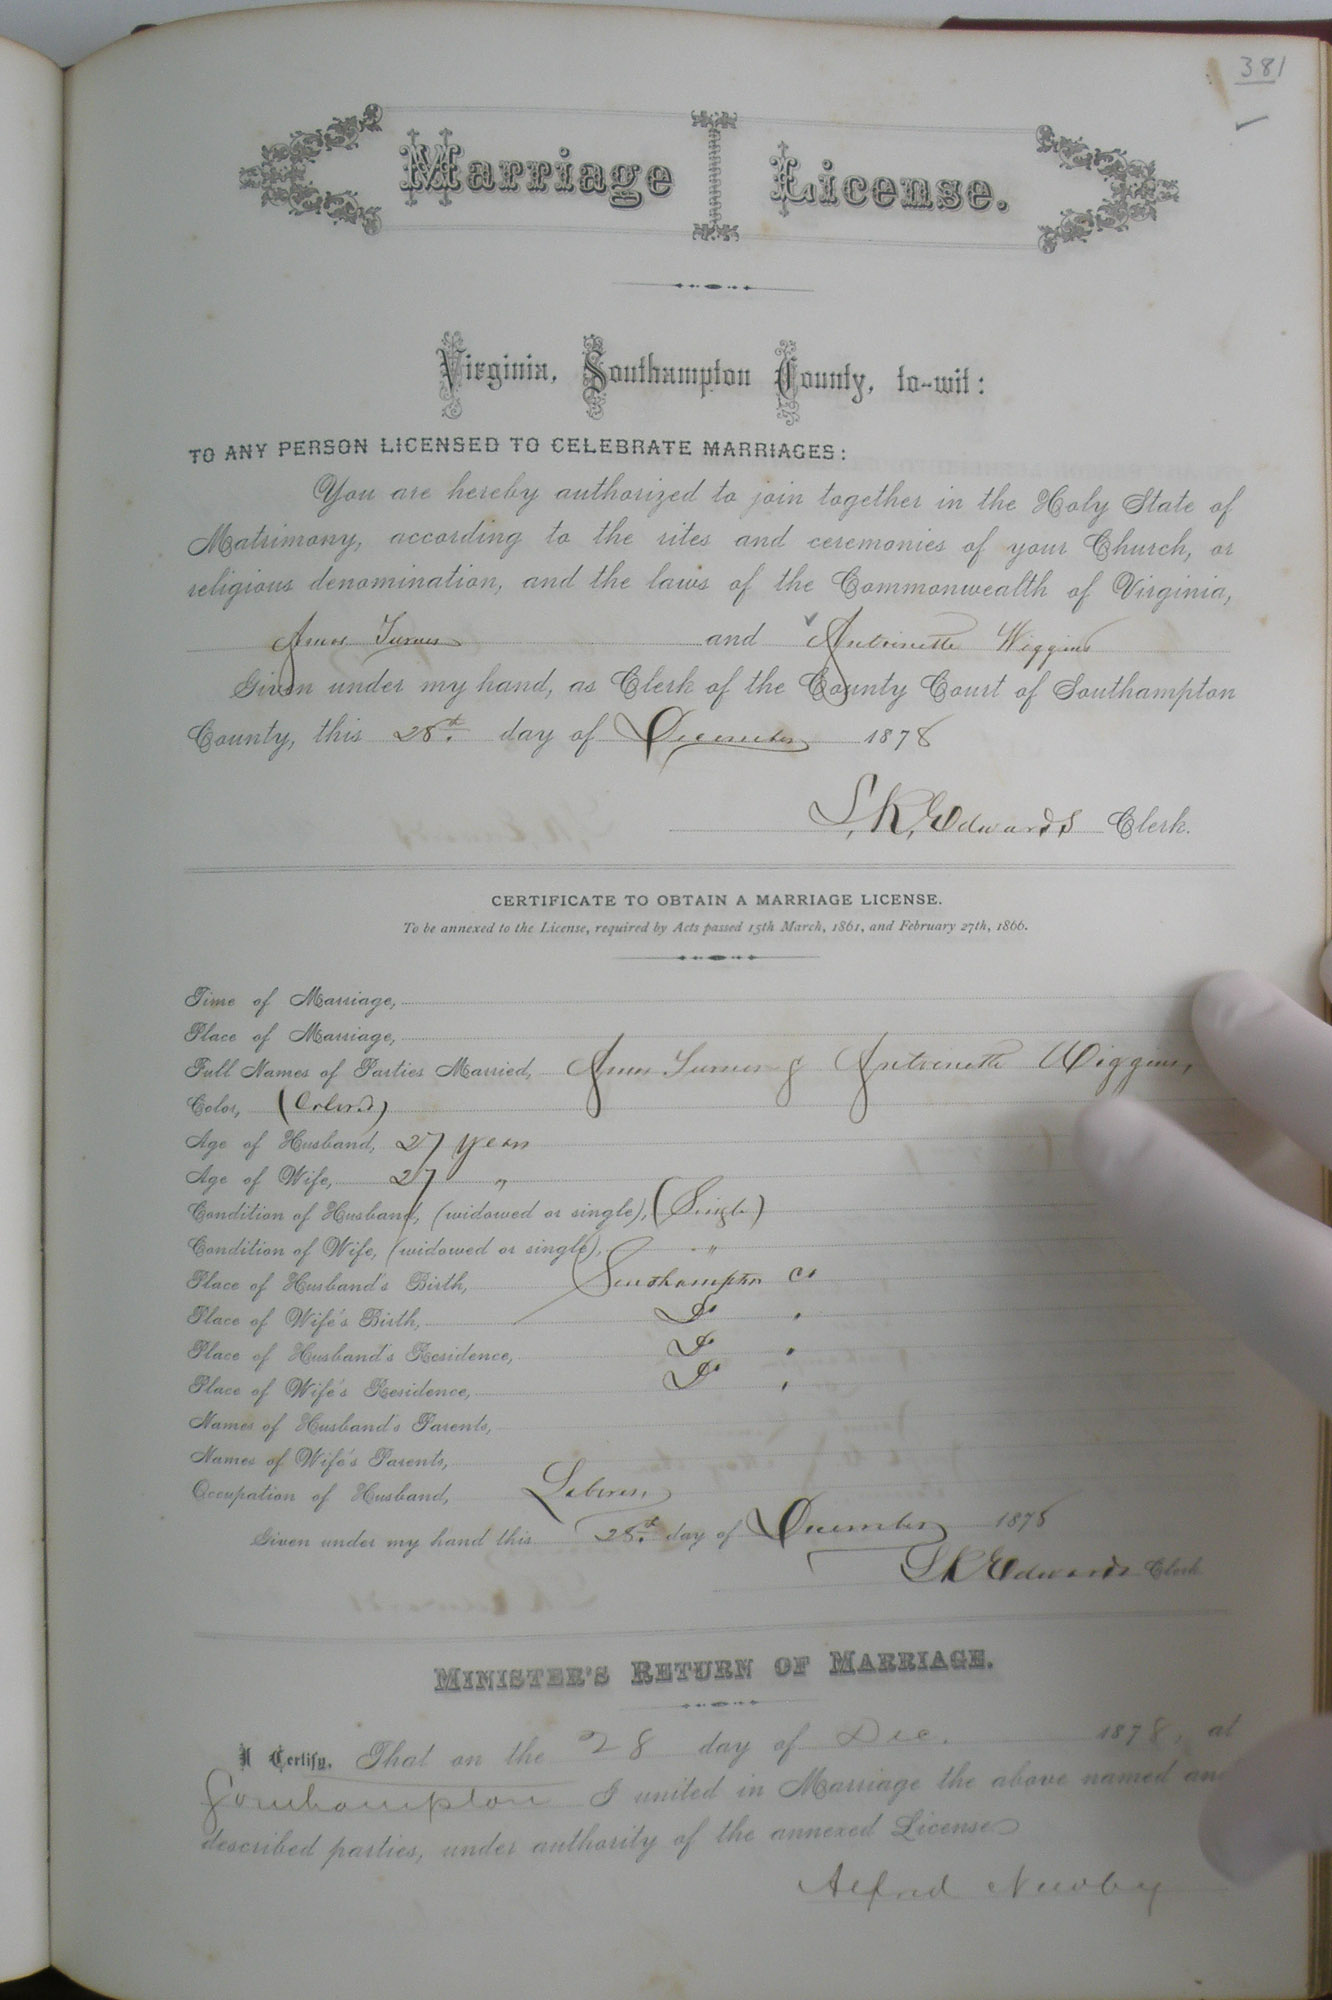 381
Marriage License.
Virginia, Southampton County, to-wit:
TO ANY PERSON LICENSED TO CELEBRATE MARRIAGES:
You are hereby authorized to join together in the Holy State of
Matrimony, according to the rites and ceremonies of your Church, or
religious denomination, and the laws of the Commonwealth of Virginia,
Amos Turner and Antoinette Wiggins
Given under my hand, as Clerk of the County Court of Southampton
County, this 28th day of December 1878
L. R. Edwards Clerk.
CERTIFICATE TO OBTAIN A MARRIAGE LICENSE.
To be annexed to the License, required by Acts passed 15th March, 1861, and February 27th, 1866.
Time of Marriage,
Place of Marriage,
Full Names of Parties Married, Amos Turner & Antoinette Wiggins,
Color, (Colord)
Age of Husband, 27 years
Age of Wife, 27 "
Condition of Husband, (widowed or single), (Single)
Condition of Wife, (widowed or single), "
Place of Husband's Birth, Southampton Co
Place of Wife's Birth, Do "
Place of Husband's Residence, Do "
Place of Wife's Residence, Do "
Names of Husband's Parents,
Names of Wife's Parents,
Occupation of Husband, Laborer
Given under my hand this 28th day of December 1878
L R Edwards Clerk
MINISTER'S RETURN OF MARRIAGE.
I Certify, That on the 28 day of Dec. 1878, at
Southampton I united in Marriage the above named and
described parties, under authority of the annexed License
Alfred Newby